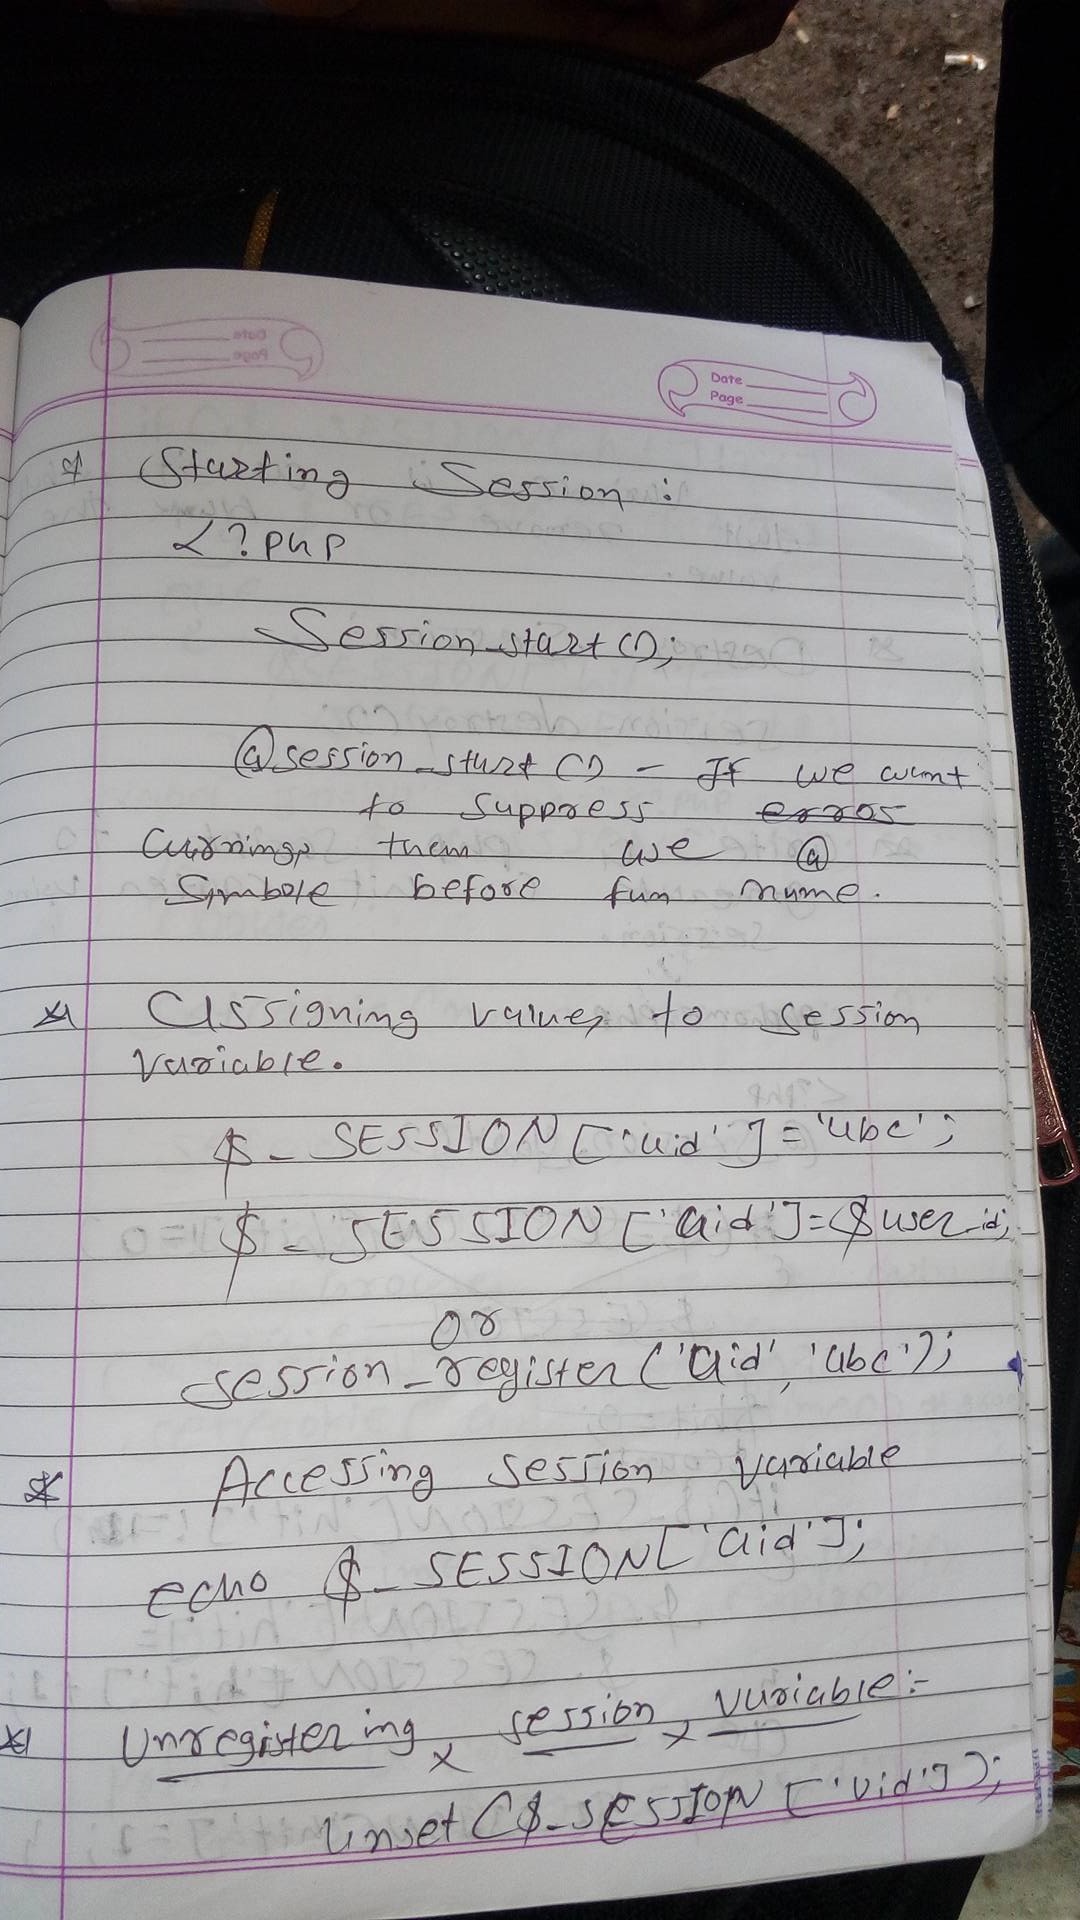 Date
Page
Date
Page
* Starting Session :
<?php
Session_start();
@session_start() - If we want
to suppress error
warnings them we @
Symbole before fun name.
* Assigning values to session
variable.
$_SESSION['uid']='abc';
$_SESSION['aid']=$user_id;
or
session_register('aid','abc');
* Accessing session variable
echo $_SESSION['aid'];
* Unregistering x session x variable:-
unset($_SESSION['uid']);